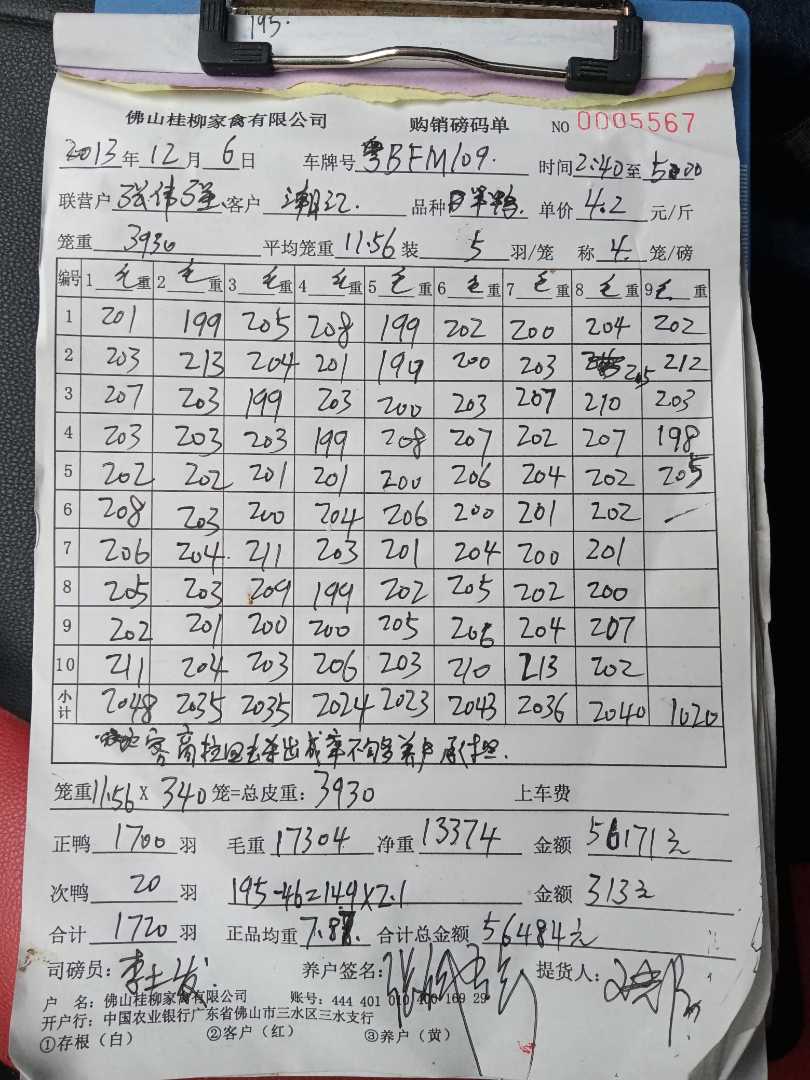 195.
佛山桂柳家禽有限公司 购销磅码单 NO 0005567
2013年12月6日 车牌号 粤BFM109. 时间2:40至5:00
联营户 张伟强 客户 潮江 品种 单价 4.2 元/斤
笼重 3930 平均笼重 11.56 装 5 羽/笼 称 4. 笼/磅
编号 1 毛重 2 毛重 3 毛重 4 毛重 5 毛重 6 毛重 7 毛重 8 毛重 9 毛重
1 201 199 205 208 199 202 200 204 202
2 203 213 204 201 199 200 203 205 212
3 207 203 199 203 200 203 207 210 203
4 203 203 203 199 208 207 202 207 198
5 202 202 201 201 200 206 204 202 205
6 208 203 200 204 206 200 201 202 —
7 206 204 211 203 201 204 200 201
8 205 203 209 199 202 205 202 200
9 202 201 200 200 205 206 204 207
10 211 204 203 206 203 210 213 202
小计 2048 2035 2035 2024 2023 2043 2036 2040 1020
客商拉回去杀出成率不够养户承担.
笼重11.56 X 340笼=总皮重:3930 上车费
正鸭 1700 羽 毛重 17304 净重 13374 金额 56171元
次鸭 20 羽 195-46=149X2.1 金额 313元
合计 1720 羽 正品均重 7.87 合计总金额 56484元
司磅员: 养户签名: 提货人:
户 名: 佛山桂柳家禽有限公司 账号: 444 401 010 400 169 29
开户行: 中国农业银行广东省佛山市三水区三水支行
①存根(白) ②客户(红) ③养户(黄)